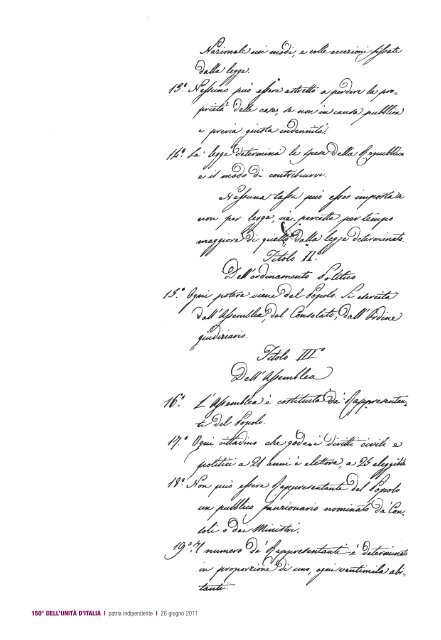 Nazionale nei modi, e colle eccezioni fissate
dalla legge.
13.° Nessuno può essere astretto a perdere la pro-
prietà delle cose, se non in causa pubblica
e previa giusta indennità.
14.° La legge determina le spese della Repubblica
e il modo di contribuirvi.
Nessuna tassa può esser imposta se
non per legge, nè percetta per tempo
maggiore di quello dalla legge determinato.
Titolo II.°
Dell'ordinamento Politico
15.° Ogni potere viene dal Popolo. Si esercita
dall'Assemblea, dal Consolato, dall'Ordine
giudiziario.
Titolo III°
Dell'Assemblea
16.° L'Assemblea è costituita da' Rappresentan-
ti del Popolo.
17.° Ogni cittadino che gode i diritti civili e
politici a 21 anni è elettore, a 25 eleggibile
18.° Non può essere Rappresentante del Popolo
un pubblico funzionario nominato da' Con-
soli o dai Ministri.
19.° Il numero de' Rappresentanti è determinato
in proporzione di uno, ogni ventimila abi-
tanti.
150° DELL'UNITÀ D'ITALIA | patria indipendente | 26 giugno 2011